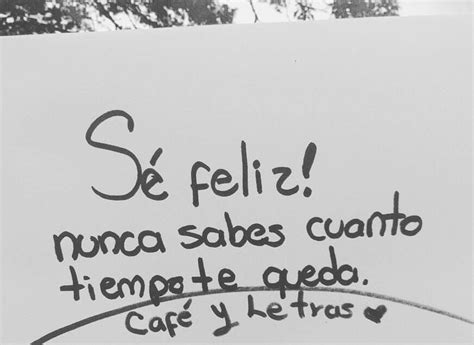 Sé feliz!
nunca sabes cuanto
tiempo te queda.
Café y Letras